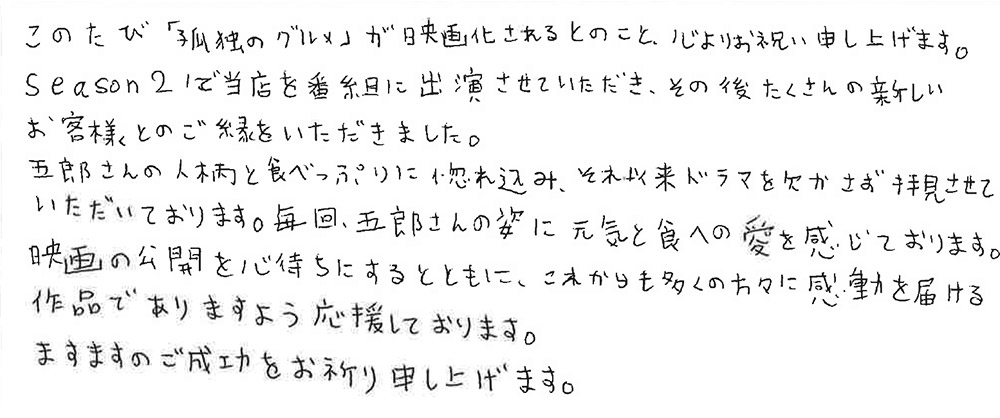 このたび「孤独のグルメ」が映画化されるとのこと、心よりお祝い申し上げます。
Season2で当店を番組に出演させていただき、その後たくさんの新しい
お客様とのご縁をいただきました。
五郎さんの人柄と食べっぷりに惚れ込み、それ以来ドラマを欠かさず拝見させて
いただいております。毎回、五郎さんの姿に元気と食への愛を感じております。
映画の公開を心待ちにするとともに、これからも多くの方々に感動を届ける
作品でありますよう応援しております。
ますますのご成功をお祈り申し上げます。